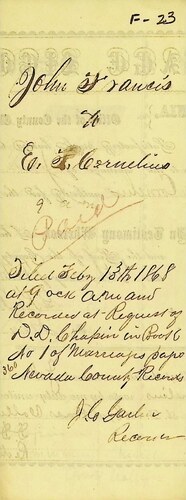 F-23
John Francis
to
E. F. Cornelius
Paid
Filed Feby 13th 1868
at 9 ock A.M. and
Recorded at Request of
D.D. Chapin in Book
No 1 of Marriags page
360 Nevada County Records
Recorder